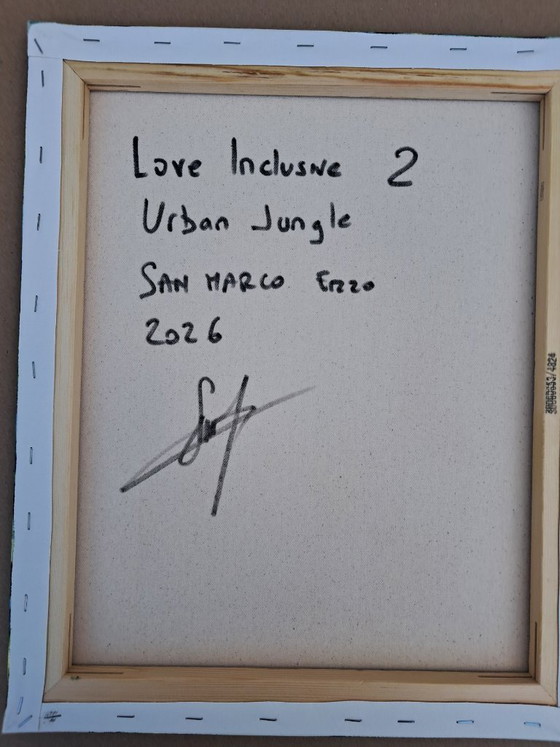 Love Inclusive 2
Urban Jungle
SAN MARCO Enzo
2026